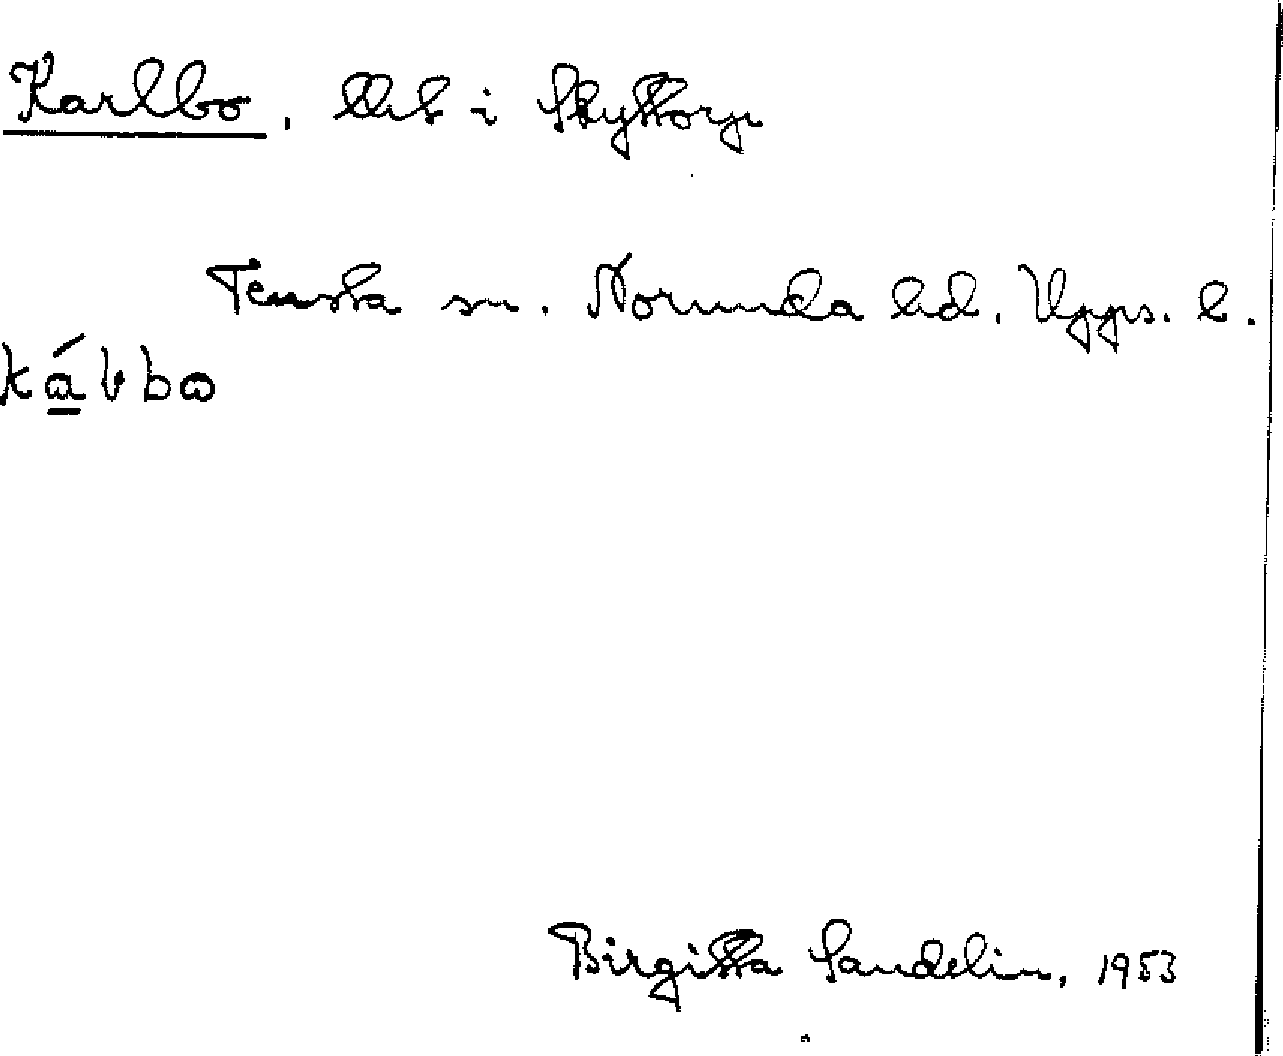 Karlbo, ttr i Skyttorp
Tensta sn. Norunda hd. Upps. l.
Birgitta Sandelin, 1953